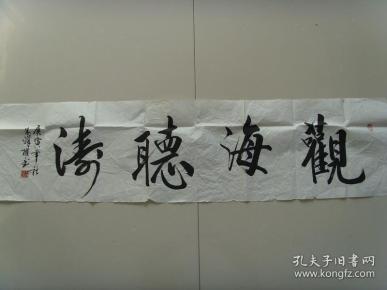 觀海聽濤
庚寅年秋
孔夫子旧书网
www.kongfz.com